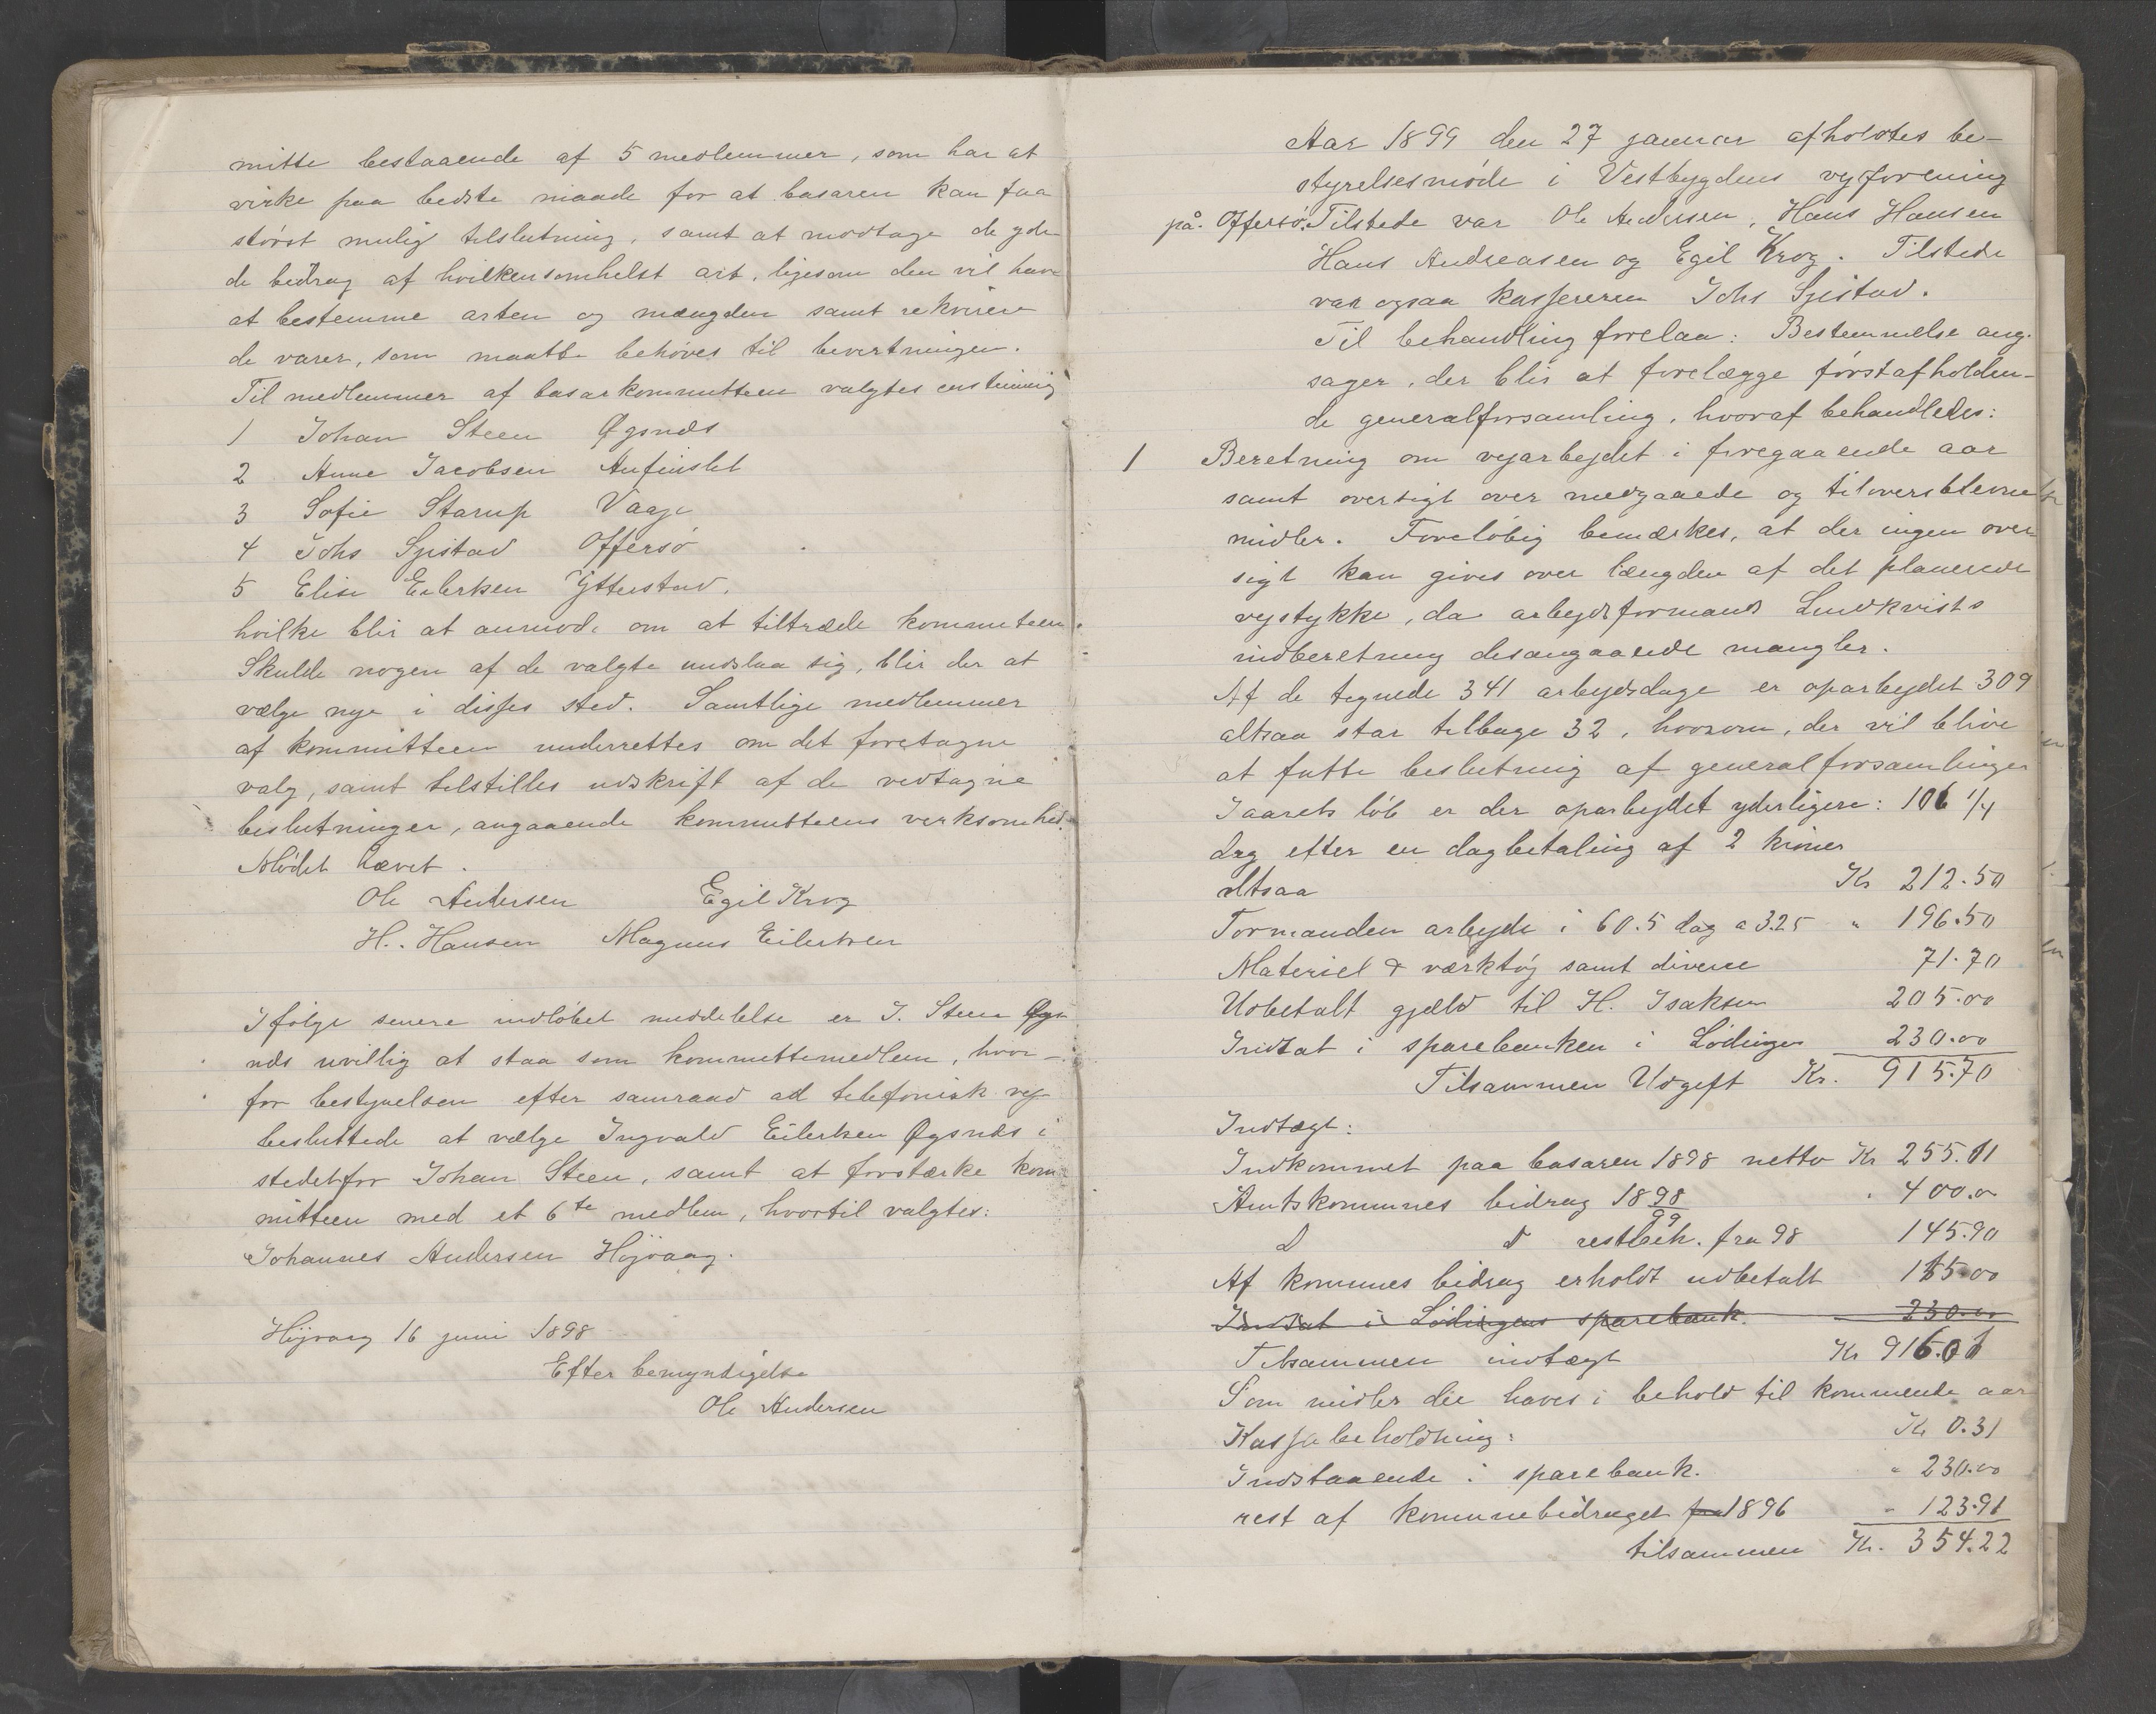 mitte bestaaende af 5 medlemmer, som har at
virke paa bedste maade for at basaren kan faa
størst mulig tilslutning, samt at modtage de yden-
de bidrag af hvilkensomhelst art, ligesom den vil have
at bestemme arten og mængden samt rekvirere
de varer, som maatte behöves til bevertningen.
Til medlemmer af basarkommitteen valgtes enstemmig
1 Johan Steen Øgsnæs
2 Anne Jacobsen Anfinslet
3 Sofie Starup Vaage
4 Johs Sjistad Offersö
5 Elise Eilertsen Ytterstad.
hvilke blir at anmode om at tiltræde kommiteen.
Skulde nogen af de valgte undslaa sig, blir der at
vælge nye i disses sted. Samtlige medlemmer
af kommitteen underrettes om det foretagne
valg, samt tilstilles udskrift af de vedtagne
beslutninger, angaaende kommitteens verksomhed.
Mödet hævet.
Ole Andersen Egil Krog
H. Hansen Magnus Eilertsen
Ifölge senere indlöbet meddelelse er J. Steen Øgs-
næs uvillig at staa som kommittemedlem, hvor-
for bestyrelsen efter samraad ad telefonisk vej
besluttede at vælge Ingvald Eilertsen Øgsnæs i
stedetfor Johan Steen, samt at forstærke kom-
mitteen med et 6te medlem, hvortil valgtes:
Johannes Andersen Höjvaag.
Höjvaag 16 juni 1898
Efter bemyndigelse
Ole Andersen
Aar 1899 den 27 januar afholdtes be-
styrelsesmöde i Vestbygdens vejforening
på Offersö. Tilstede var Ole Andersen, Hans Hansen
Hans Andreasen og Egil Krog. Tilstede
var ogsaa kassereren Johs Sjistad.
Til behandling forelaa: Bestemmelse ang.
sager, der blir at forelægge förstafholden-
de generalforsamling, hvoraf behandledes:
1 Beretning om vejarbejdet i foregaaende aar
samt oversigt over medgaaede og tiloversblevne
midler. Foreløbig bemærkes, at der ingen over
sigt kan gives over længden af det planerede
vejstykke, da arbejdsformand Lindkvists
indberetning desangaaende mangler.
Af de tegnede 341 arbejdsdage er oparbejdet 309
altsaa star tilbage 32, hvorom, der vil blive
at fatte beslutning af generalforsamlingen
I aarets löb er der oparbejdet yderligere: 106 1/4
dag efter en dagbetaling af 2 kroner
altsaa Kr 212.50
Formanden arbejde i 60.5 dag a 3.25 " 196.50
Materiel & værktöj samt diverse 71.70
Udbetalt gjæld til H. Isaksen 205.00
Indsat i sparebanken i Lödingen 230.00
Tilsammen Udgift Kr. 915.70
Indtægt:
Indkommet paa basaren 1898 netto Kr 255.11
Amtskommunes bidrag 1898/99 " 400.00
D D restbeh. fra 98 145.90
Af kommunes bidrag erholdt udbetalt 115.00
Indsat i Lödingens sparebank. 230.00
Tilsammen indtægt Kr 916.01
Som midler die haves i behold til kommende aar
Kassabeholdning: Kr 0.31
Indstaaende i sparebank. " 230.00
rest af kommunebidraget fra 1896 " 123.91
tilsammen Kr. 354.22